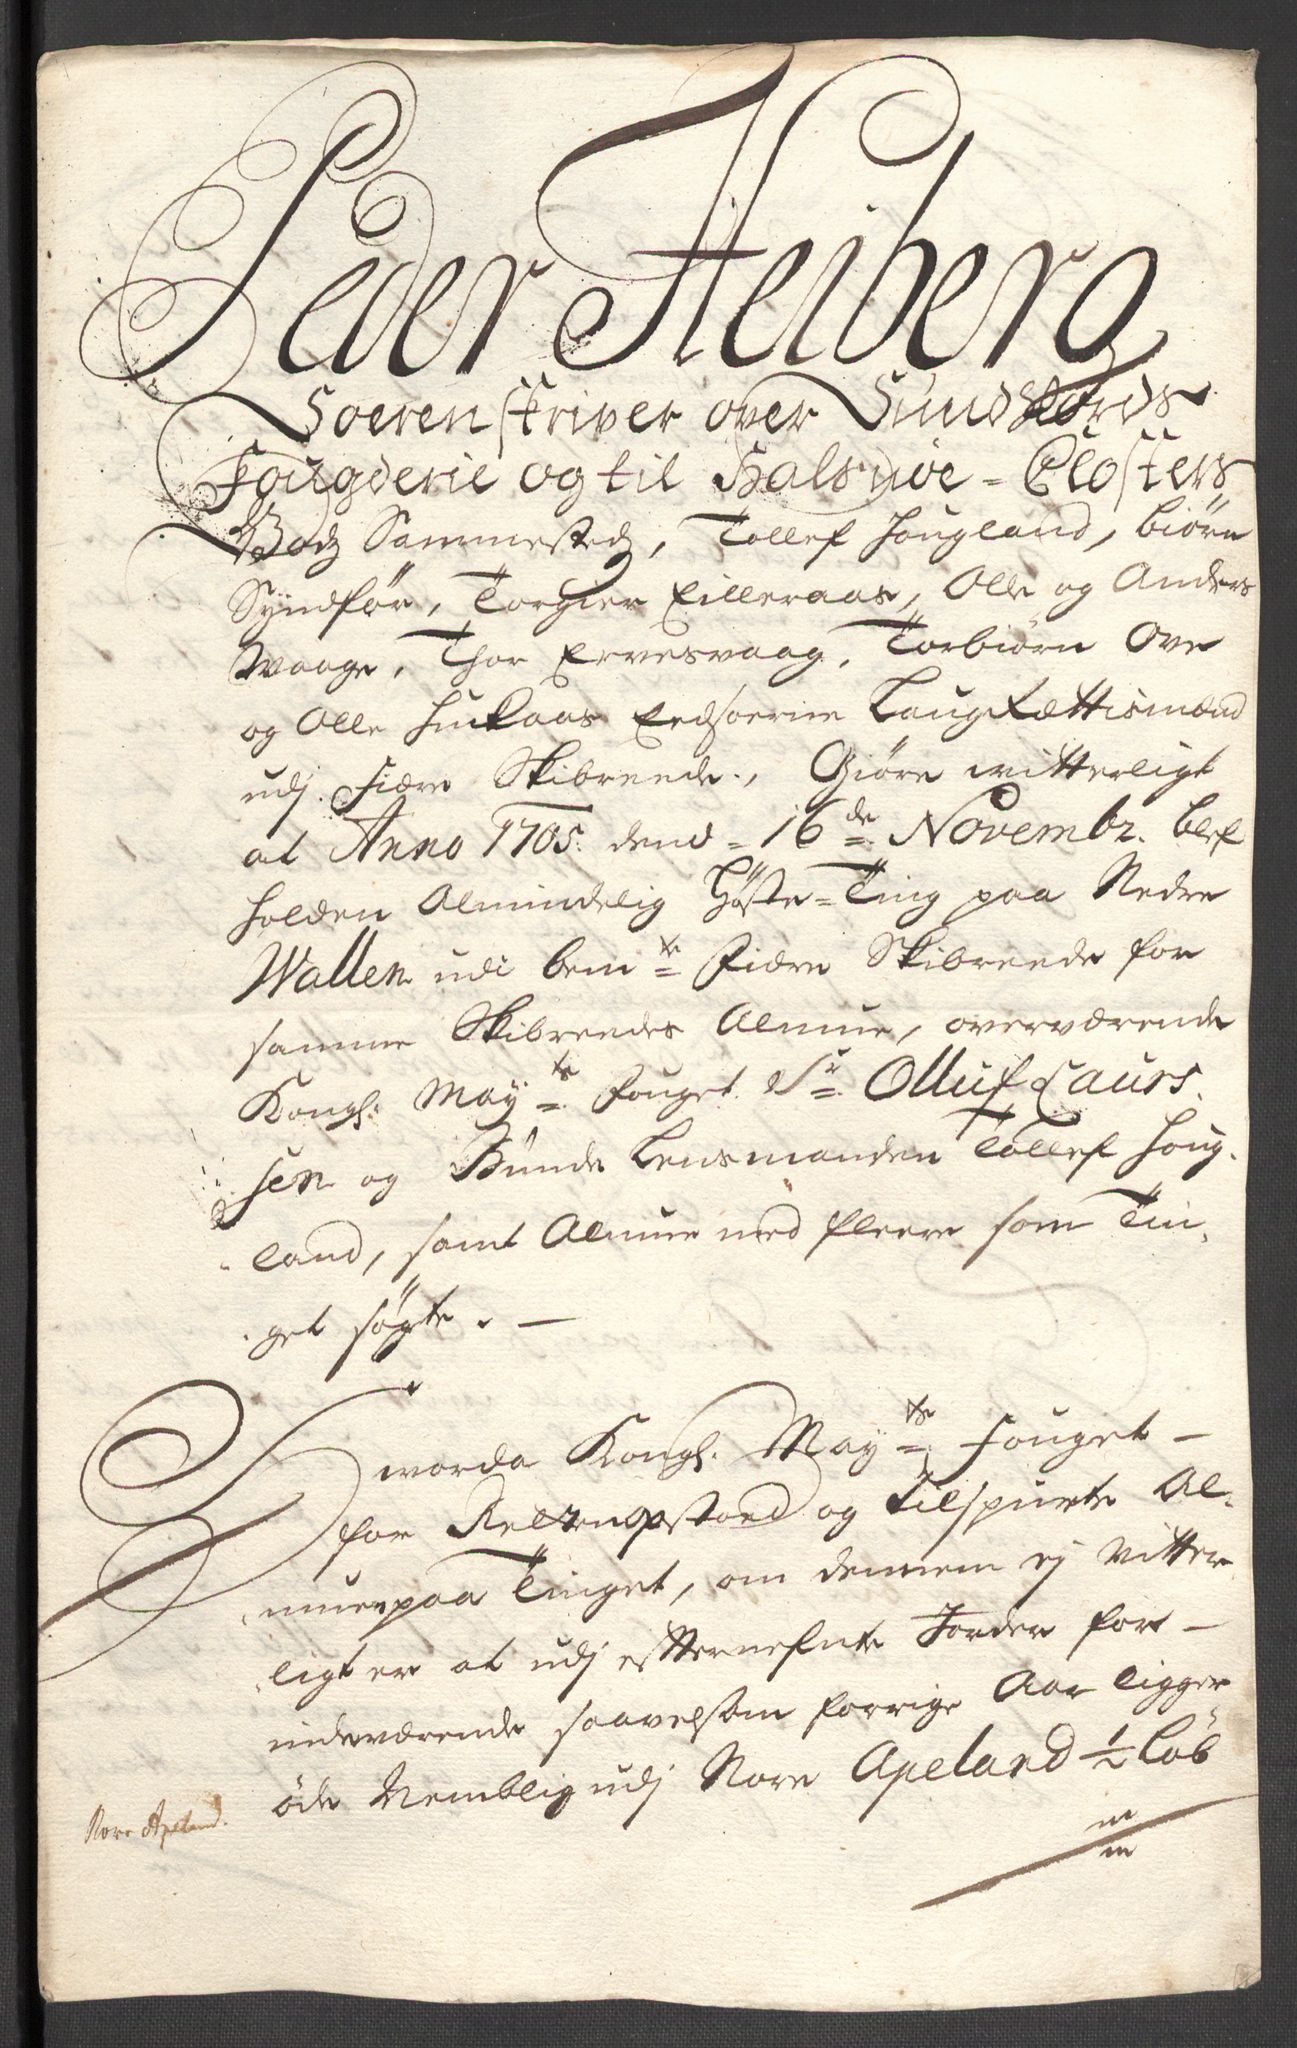 Peder Heiberg
Soerenskriver over Sundhords
Fougderie og til Halsnöe = Closters
Godz Sammestedz, Tollef Hougland, Biörn
Sÿndför, Torgier Eilleraas, Olle og Anders
Waage, Thor Ervesvaag, Torbiörn Ove
og Olle Hukaas Eedsoerne Laugrættismænd
udj Fiære Skibreede, Giöre witterligt
at Anno 1705. dend = 16de Novembr. blef
holden Almindelig Höste=Ting paa Nedre
Wallen udi bemte Fiære Skibreede for
samme Skibreedes Almue, overværende
Kongl: Mayts Fouget Sr Olluf Laurs.
sen og Bunde Lensmanden Tollef Houg.
land, samt Almue med fleere som Tin,
get sögte. —
worda Kongl: Mayts Fouget —
for Retten opstoed og Tilspurte Al,
muen paa Tinget, om dennem ej Vitter
ligt er at udj efternefnte Jorder for —
indeværende saavelsom forrige Aar ligger
öde Nemblig udj Nore Apeland ½ Löb
Nore Apeland.
m
m